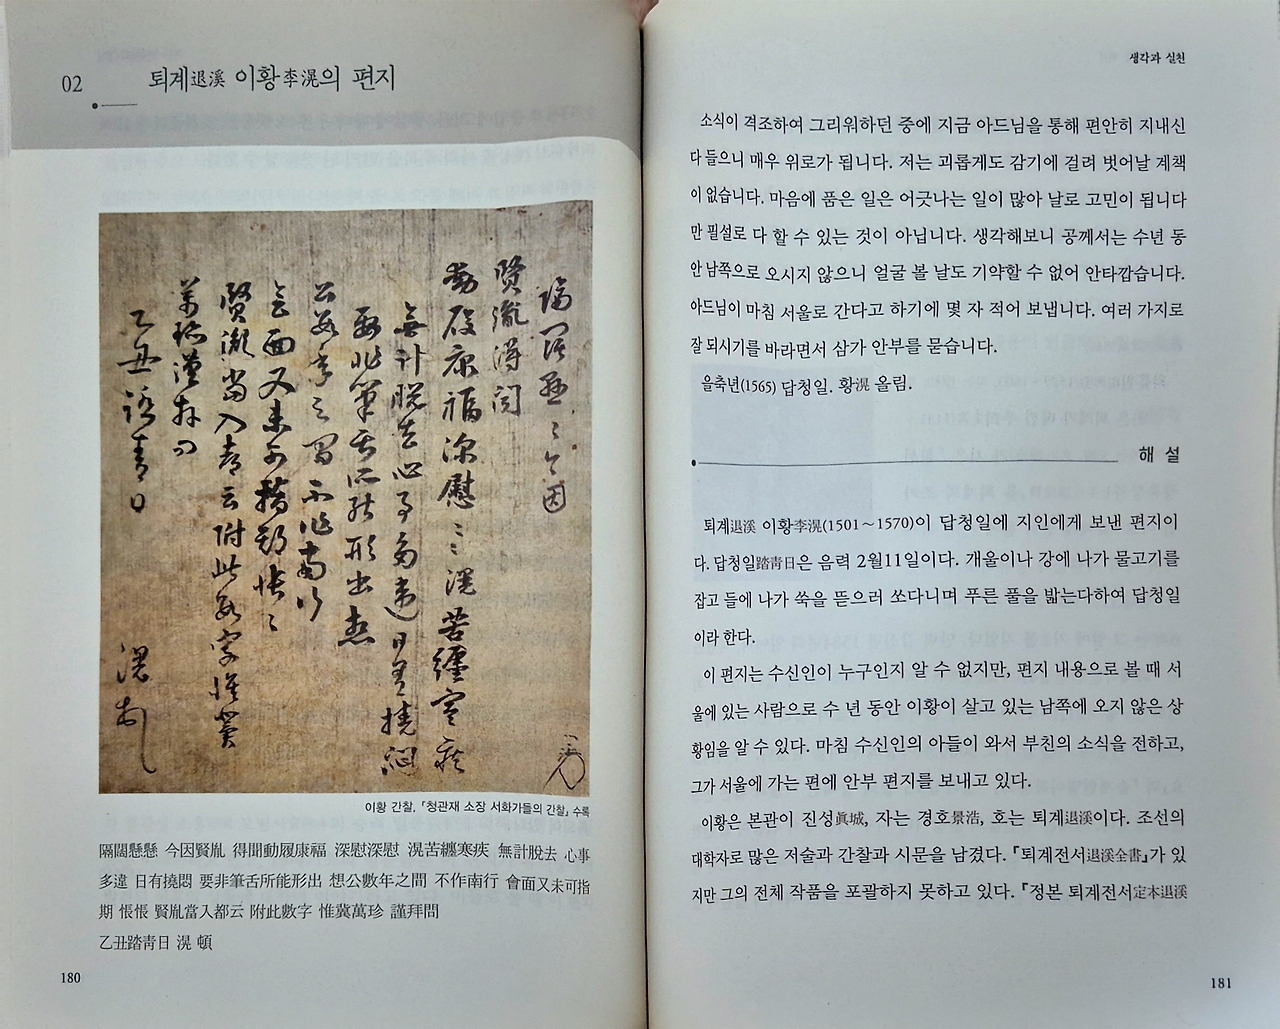 02 퇴계退溪 이황李滉의 편지
隔闊懸〻今因
賢胤得聞
動履康福深慰〻滉苦纏寒疾
無計脫去心事多違日有撓悶
要非筆舌所能形出想
公數年之間不作南行
會面又未可指期悵〻
賢胤當入都云附此數字惟冀
萬珍謹拜問
乙丑踏青日 滉頓
이황 간찰, 『청관재 소장 서화가들의 간찰』 수록
隔闊懸懸 今因賢胤 得聞動履康福 深慰深慰 滉苦纏寒疾 無計脫去 心事
多違 日有撓悶 要非筆舌所能形出 想公數年之間 不作南行 會面又未可指
期 悵悵 賢胤當入都云 附此數字 惟冀萬珍 謹拜問
乙丑踏靑日 滉 頓
180
생각과 실천
소식이 격조하여 그리워하던 중에 지금 아드님을 통해 편안히 지내신
다 들으니 매우 위로가 됩니다. 저는 괴롭게도 감기에 걸려 벗어날 계책
이 없습니다. 마음에 품은 일은 어긋나는 일이 많아 날로 고민이 됩니다
만 필설로 다 할 수 있는 것이 아닙니다. 생각해보니 공께서는 수년 동
안 남쪽으로 오시지 않으니 얼굴 볼 날도 기약할 수 없어 안타깝습니다.
아드님이 마침 서울로 간다고 하기에 몇 자 적어 보냅니다. 여러 가지로
잘 되시기를 바라면서 삼가 안부를 묻습니다.
을축년(1565) 답청일. 황滉 올림.
해설
퇴계退溪 이황李滉(1501～1570)이 답청일에 지인에게 보낸 편지이
다. 답청일踏靑日은 음력 2월11일이다. 개울이나 강에 나가 물고기를
잡고 들에 나가 쑥을 뜯으러 쏘다니며 푸른 풀을 밟는다하여 답청일
이라 한다.
이 편지는 수신인이 누구인지 알 수 없지만, 편지 내용으로 볼 때 서
울에 있는 사람으로 수 년 동안 이황이 살고 있는 남쪽에 오지 않은 상
황임을 알 수 있다. 마침 수신인의 아들이 와서 부친의 소식을 전하고,
그가 서울에 가는 편에 안부 편지를 보내고 있다.
이황은 본관이 진성眞城, 자는 경호景浩, 호는 퇴계退溪이다. 조선의
대학자로 많은 저술과 간찰과 시문을 남겼다. 『퇴계전서退溪全書』가 있
지만 그의 전체 작품을 포괄하지 못하고 있다. 『정본 퇴계전서定本退溪
181